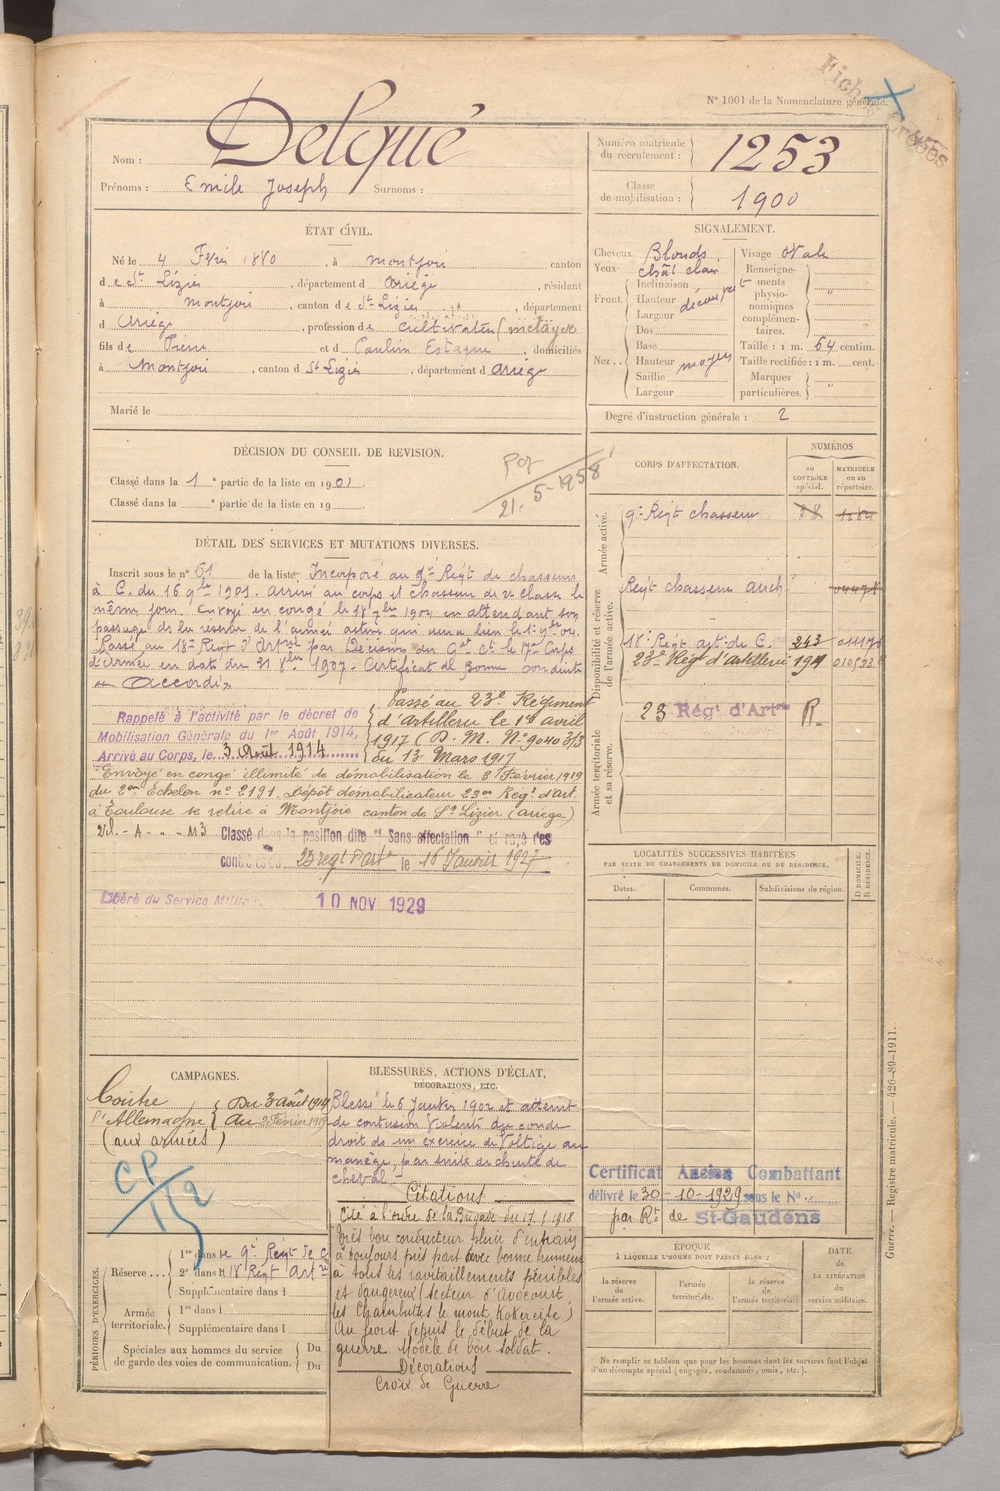 Fiches
N° 1001 de la Nomenclature générale.
Nom : Delqué
Prénoms : Emile Joseph Surnoms :
Numéro matricule du recrutement : 1253
Classe de mobilisation : 1900
ÉTAT CIVIL.
Né le 4 Févr 1880, à Montjoie canton
de St Lizier, département d Ariège, résidant
à Montjoie, canton de St-Lizier, département
d Ariège, profession de cultivateur (métayer
fils de Pierre et d Paulin Estaque, domiciliés
à Montjoie, canton d St Lizier, département d Ariège
Marié le
SIGNALEMENT.
Cheveux Blonds.
Yeux chât clair
Front Inclinaison
Hauteur découvert
Largeur
Nez Dos
Base
Hauteur moyen
Saillie
Largeur
Visage Ovale
Renseignements physionomiques complémentaires. "
Taille : 1 m. 64 centim.
Taille rectifiée : 1 m. cent.
Marques particulières. "
Degré d'instruction générale : 2
DÉCISION DU CONSEIL DE REVISION.
Classé dans la 1e partie de la liste en 1901.
Classé dans la e partie de la liste en 19
21-5-1958
DÉTAIL DES SERVICES ET MUTATIONS DIVERSES.
Inscrit sous le n° 61 de la liste. Incorporé au 9e Regt de chasseurs
à C. du 16 9bre 1901. arrivé au corps et chasseur de 2e classe le
même jour. Envoyé en congé le 18 7bre 1902 en attendant son
passage ds la réserve de l'armée active qui aura lieu le 1er 9bre 04.
Passé au 18e Regt d'Artrie par Décision du Gal Ct le 17e Corps
d'Armée en date du 21 8bre 1907. Certificat de Bonne conduite
" Accordé "
Rappelé à l'activité par le décret de
Mobilisation Générale du 1er Août 1914,
Arrivé au Corps, le 3 Août 1914
Passé au 23e Régiment
d'Artillerie le 1er avril
1917 (D. M. N° 9040 3/3
du 13 Mars 1917
Envoyé en congé illimité de démobilisation le 3 Février 1919
du 2me Echelon n° 2191. Dépôt démobilisateur 23me Regt d'art.
à Toulouse se retire à Montjoie canton de St Lizier (Ariège)
Classé dans la position dite " Sans affectation " et rayé des
contrôles du 23 regt d'artie le 16 Janvier 1927
Libéré du Service Militaire 10 NOV 1929
CORPS D'AFFECTATION.
NUMÉROS
au contrôle spécial.
matricule ou au répertoire.
Armée active.
9e Regt chasseurs
Disponibilité et réserve de l'armée active.
Regt chasseurs auch
18e Regt art. de C. 243
23e Régt d'artillerie
Armée territoriale et sa réserve.
23 Régt d'Artrie R.
LOCALITÉS SUCCESSIVES HABITÉES
PAR SUITE DE CHANGEMENTS DE DOMICILE OU DE RÉSIDENCE.
Dates. Communes. Subdivisions de région.
D DOMICILE. R RÉSIDENCE.
CAMPAGNES.
Contre l'Allemagne { Du 3 août 1914
au 2 Février 1919
(aux armées)
CP
BLESSURES, ACTIONS D'ÉCLAT,
DÉCORATIONS, ETC.
Blessé le 6 Janvier 1902 et atteint
de contusion violente du coude
droit ds un exercice de voltige au
manège, par suite de chute de
cheval.-
Citations
Cité à l'ordre de la Brigade du 17.8.1918
Très bon conducteur plein d'entrain
à toujours pris part avec bonne humeur
à tous les ravitaillements pénibles
et dangereux (secteur d'Avocourt
les Chambrettes le mont Kokereele)
Au front depuis le début de la
guerre. Modèle de bon soldat.
Décorations
Croix de Guerre
Certificat Ancien Combattant
délivré le 30-10-1929 sous le N°
par Rt de St-Gaudens
PÉRIODES D'EXERCICES.
Réserve... 1re dans le 9e Regt de C
2e dans le 18 Regt Art
Supplémentaire dans l
Armée territoriale. 1re dans l
Supplémentaire dans l
Spéciales aux hommes du service de garde des voies de communication. Du
Du
ÉPOQUE
À LAQUELLE L'HOMME DOIT PASSER DANS :
la réserve de l'armée active.
l'armée territoriale.
la réserve de l'armée territoriale
DATE DE LA LIBÉRATION du service militaire.
Ne remplir ce tableau que pour les hommes dont les services font l'objet
d'un décompte spécial (engagés, condamnés, omis, etc.).
Guerre. — Registre matricule. — 426-89-1911.